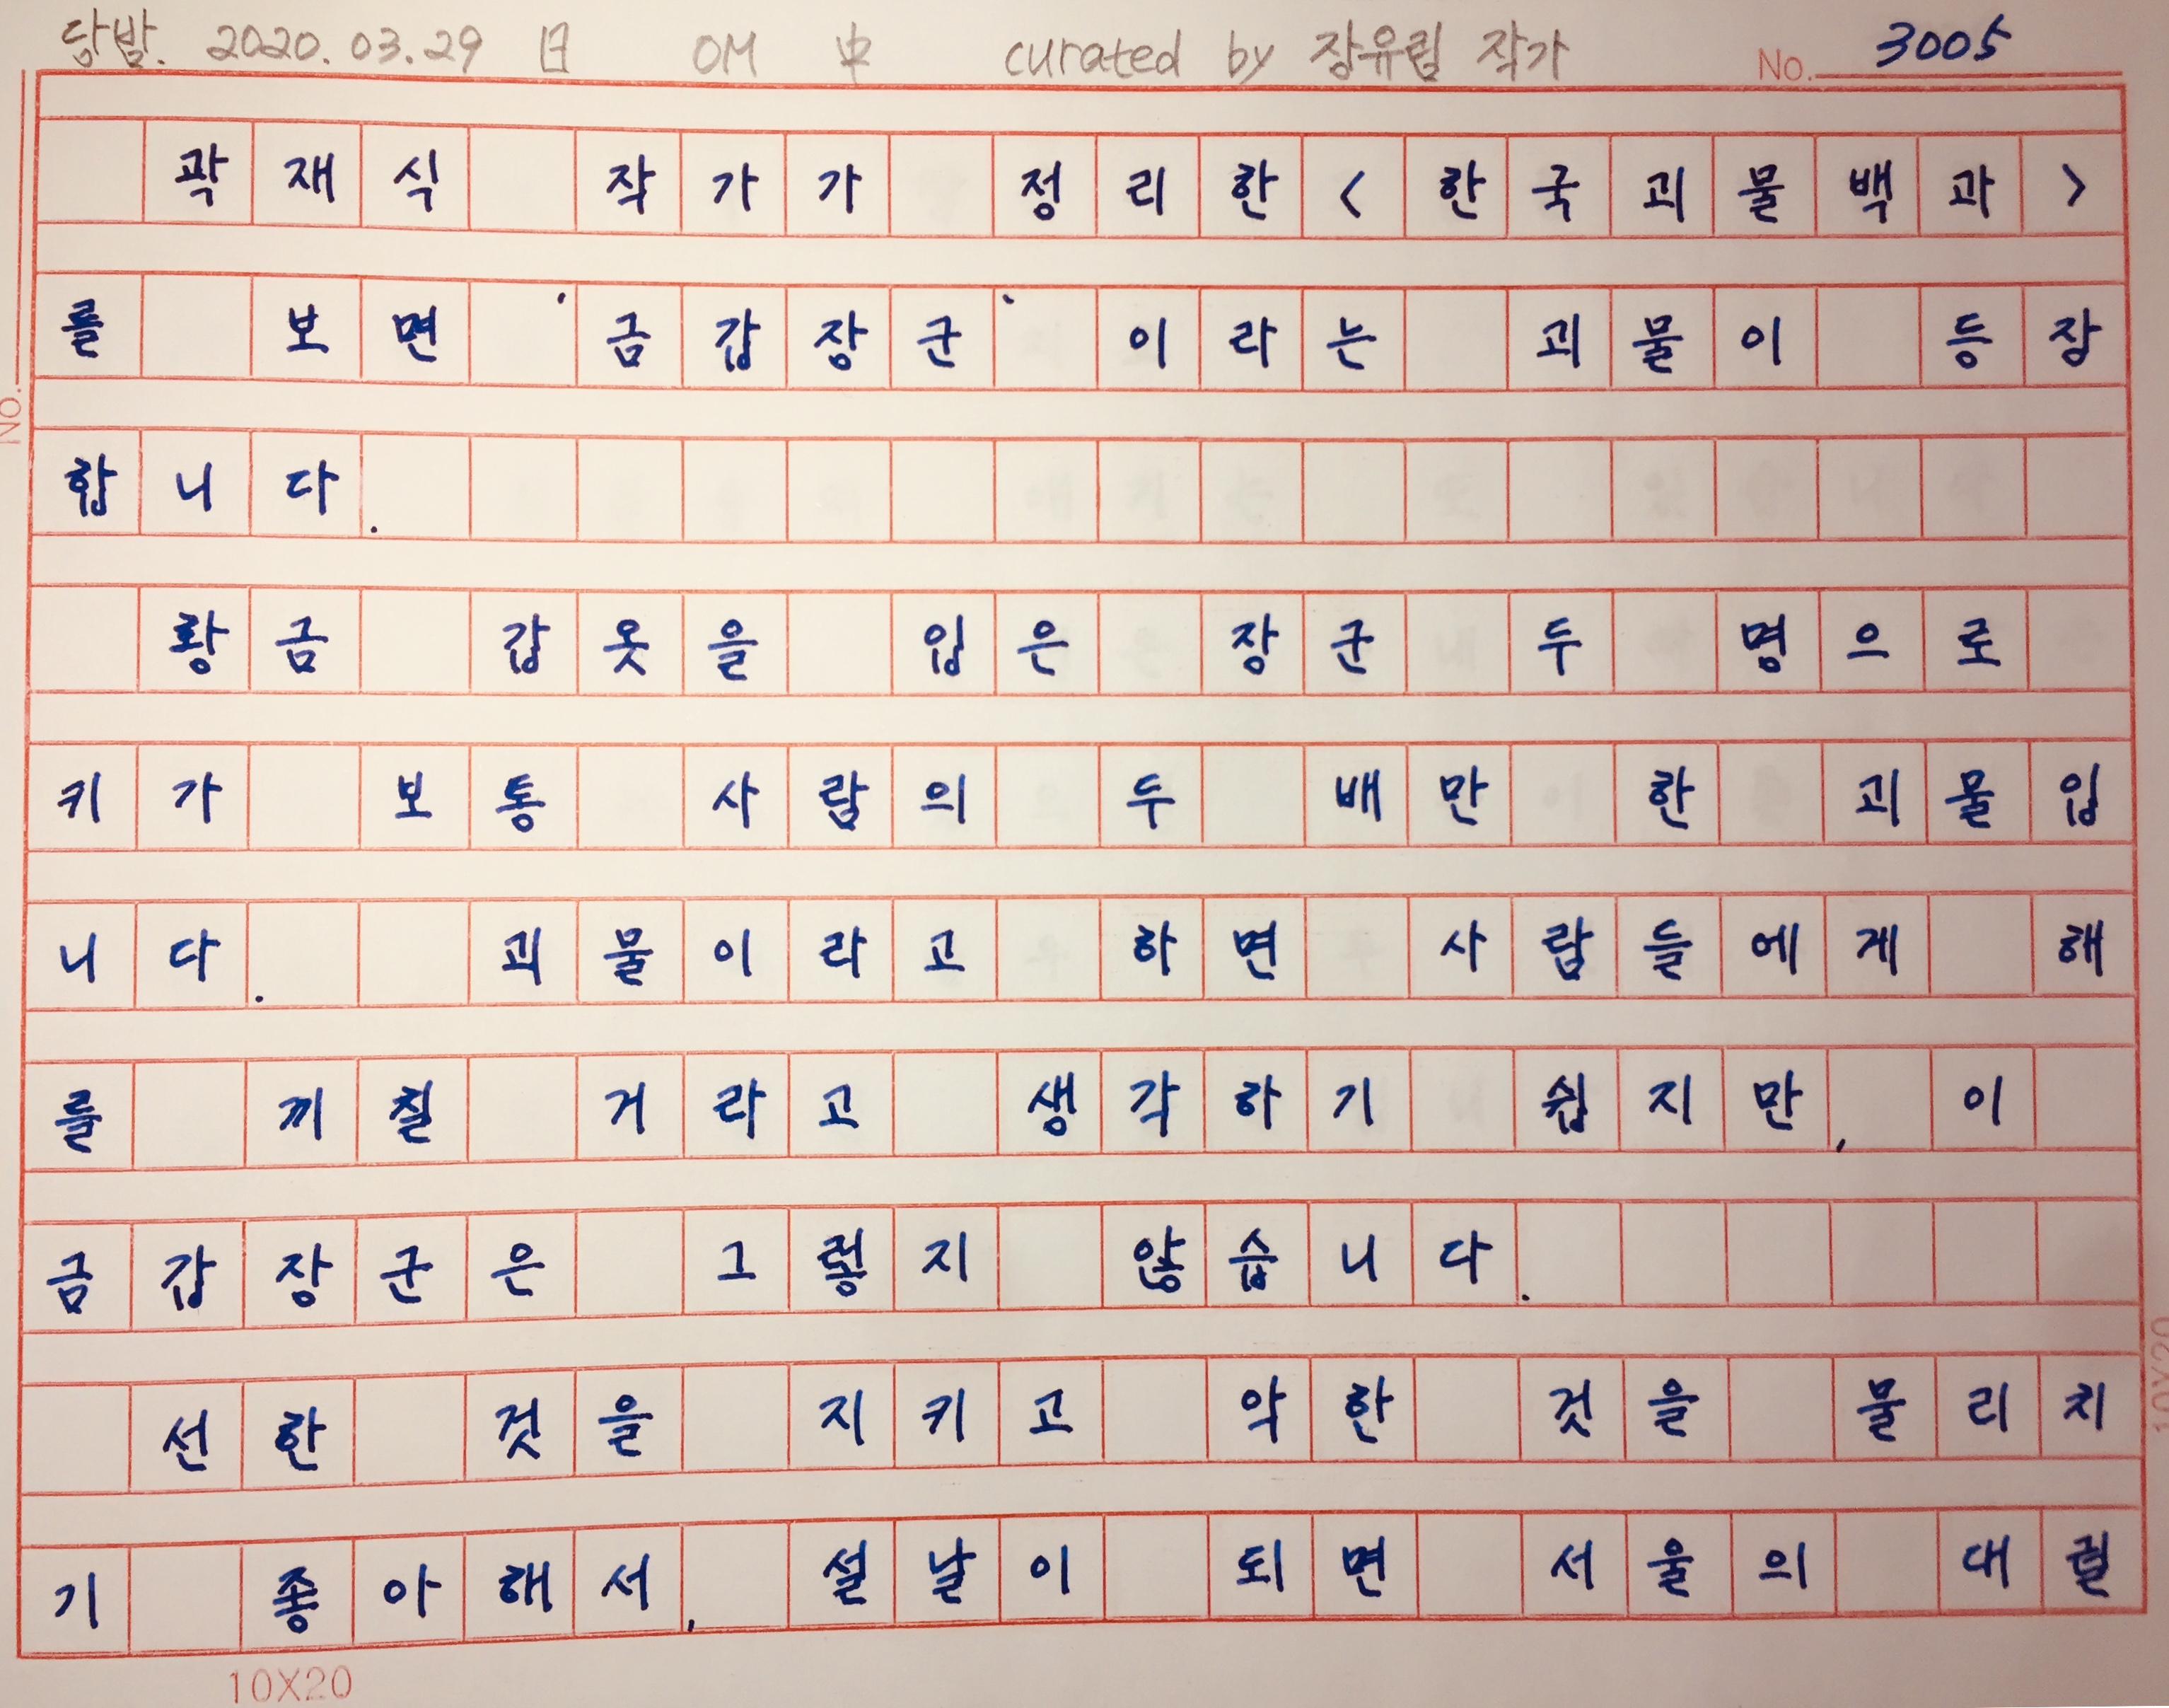 담밤. 2020.03.29 日 OM 中 curated by 장유림 작가 No. 3005
곽재식 작가가 정리한<한국괴물백과>
를 보면 '금갑장군'이라는 괴물이 등장
합니다.
황금 갑옷을 입은 장군 두 명으로
키가 보통 사람의 두 배만 한 괴물입
니다. 괴물이라고 하면 사람들에게 해
를 끼칠 거라고 생각하기 쉽지만, 이
금갑장군은 그렇지 않습니다.
선한 것을 지키고 악한 것을 물리치
기 좋아해서, 설날이 되면 서울의 대궐
No.
10X20
10X20